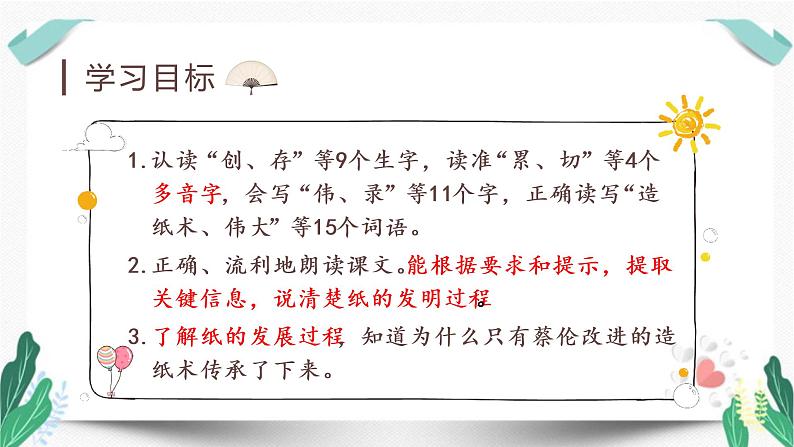 学习目标
1.认读“创、存”等9个生字，读准“累、切”等4个
多音字，会写“伟、录”等11个字，正确读写“造
纸术、伟大”等15个词语。
2.正确、流利地朗读课文。能根据要求和提示，提取
关键信息，说清楚纸的发明过程。
3.了解纸的发展过程，知道为什么只有蔡伦改进的造
纸术传承了下来。